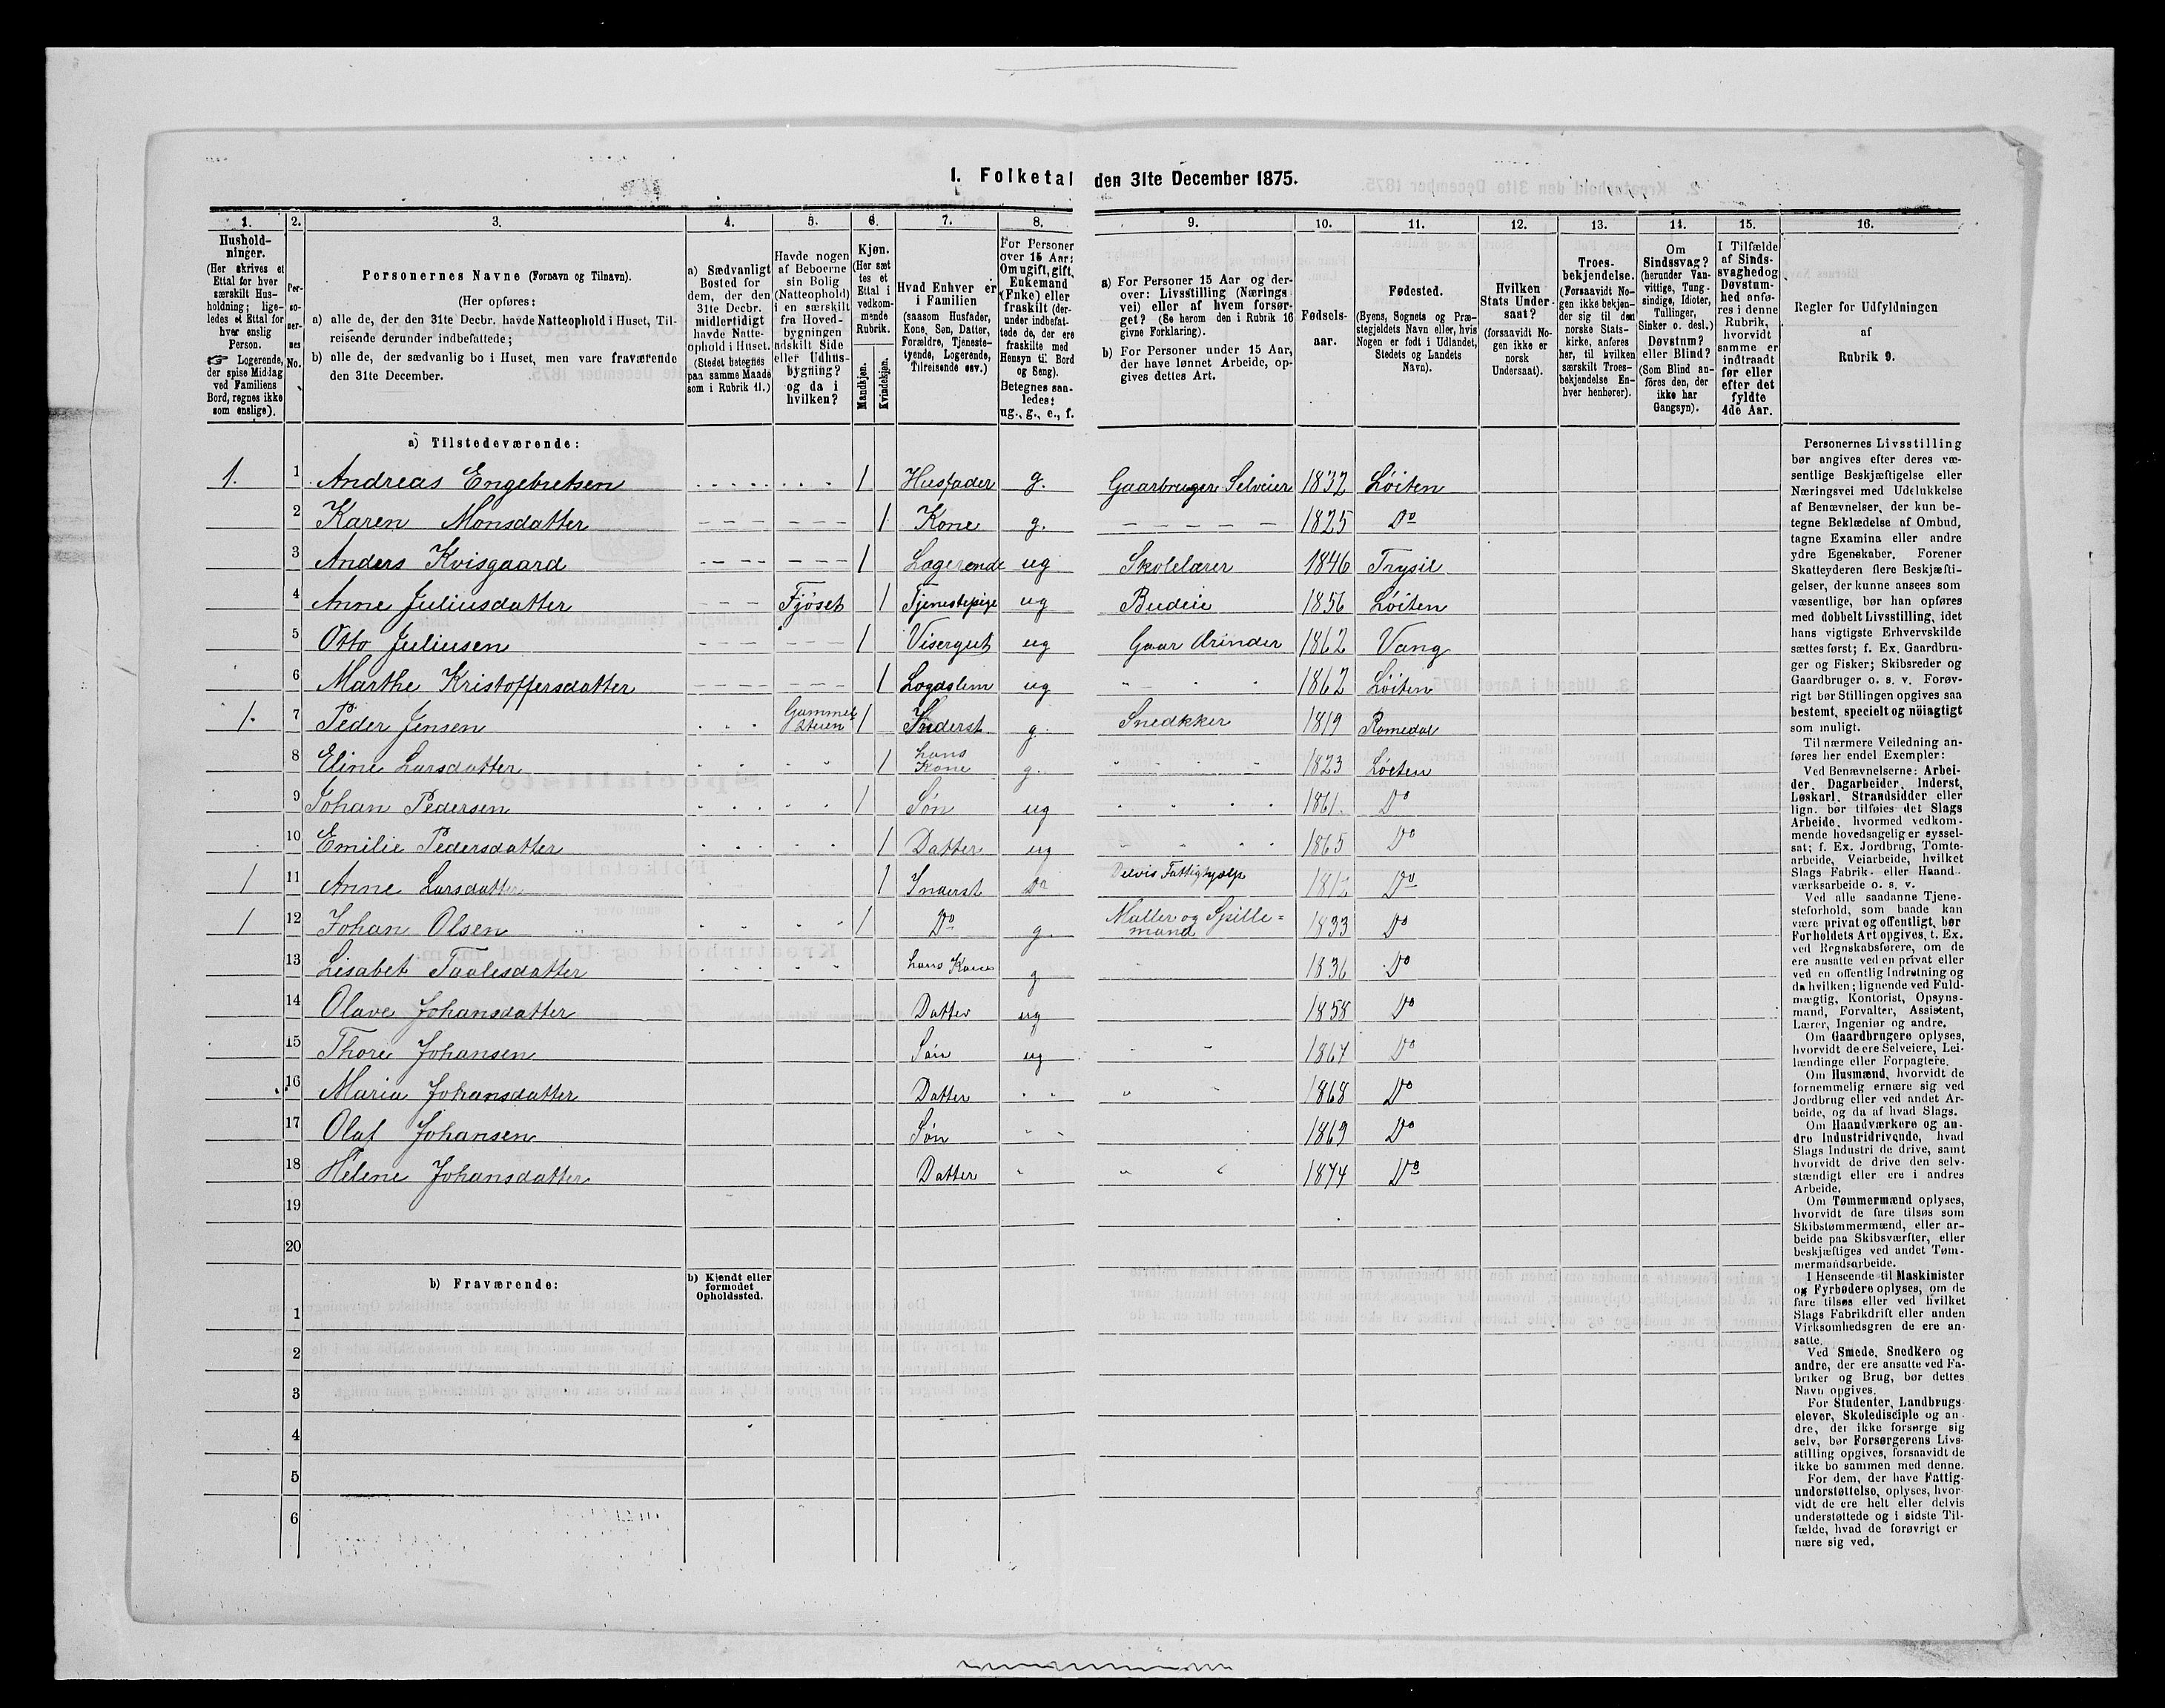 1. Folketal den 31te December 1875.
1. 2. 3. 4. 5. 6. 7. 8. 9. 10. 11. 12. 13. 14. 15. 16.
Hushold-
ninger.
(Her skrives et
Ettal for hver
særskilt Hus-
holdning; lige-
ledes et Ettal for
hver enslig
Person.
☞ Logerende,
der spise Middag
ved Familiens
Bord, regnes ikke
som enslige).
Per-
so-
ner-
nes
No.
Personernes Navne (Fornavn og Tilnavn).
(Her opføres:
a) alle de, der den 31te Decbr. havde Natteophold i Huset, Til-
reisende derunder indbefattede;
b) alle de, der sædvanlig bo i Huset, men vare fraværende
den 31te December.
a) Sædvanligt
Bosted for
dem, der den
31te Decbr.
midlertidigt
havde Natte-
ophold i Huset.
(Stedet betegnes
paa samme Maade
som i Rubrik 11.)
Havde nogen
af Beboerne
sin Bolig
(Natteophold)
i en særskilt
fra Hoved-
bygningen
adskilt Side
eller Udhus-
bygning?
og da i
hvilken?
Kjøn.
(Her sæt
tes et
Ettal i
vedkom-
mende
Rubrik.
Mandkjøn.
Kvindekjøn.
Hvad Enhver er
i Familien
(saasom Husfader,
Kone, Søn, Datter,
Forældre, Tjeneste-
tyende, Logerende,
Tilreisende osv.)
For Personer
over 15 Aar:
Om ugift, gift,
Enkemand
(Enke) eller
fraskilt (der-
under indbefat-
tede de, der ere
fraskilte med
Hensyn til Bord
og Seng).
Betegnes saa-
ledes:
ug., g., e., f.
a) For Personer 15 Aar og der-
over: Livsstilling (Nærings
vei) eller af hvem forsør-
get? (Se herom den i Rubrik 16
givne Forklaring).
b) For Personer under 15 Aar,
der have lønnet Arbeide, op-
gives dettes Art.
Fødsels-
aar.
Fødested.
(Byens, Sognets og Præ-
stegjeldets Navn eller, hvis
Nogen er født i Udlandet,
Stedets og Landets
Navn).
Hvilken
Stats Under-
saat?
(forsaavidt No-
gen ikke er
norsk
Undersaat).
Troes-
bekjendelse.
(Forsaavidt No-
gen ikke bekjen-
der sig til den
norske Stats-
kirke, anføres
her, til hvilken
særskilt Troes-
bekjendelse En-
hver henhører).
Om
Sindssvag?
(herunder Van-
vittige, Tung-
sindige, Idioter,
Tullinger,
Sinker o. desl.)
Døvstum?
eller Blind?
(Som Blind an-
føres den, der
ikke har
Gangsyn).
I Tilfælde
af Sinds-
svaghed og
Døvstum-
hed anfø-
res i denne
Rubrik,
hvorvidt
samme er
indtraadt
før eller
efter det
fyldte
4de Aar.
Regler for Udfyldningen
af
Rubrik 9.
a) Tilstedeværende:
1. 1 Andreas Engebretsen 1 Husfader g. Gaarbruger Selveier 1832 Løiten
2 Karen Monsdatter 1 Kone g. 1825 Do
3 Anders Kvisgaard 1 Logerende ug Skolelærer 1846 Trysil
4 Anne Juliusdatter Fjöset 1 Tjenestepige ug Budeie 1856 Løiten
5 Otto Juliusen 1 Visergut ug Gaar Ærinder 1862 Vang
6 Marthe Kristoffersdatter 1 Logdslem ug 1862 Løiten
1. 7 Peder Jensen Gammel Stuen 1 Inderst g. Snedkker 1819 Romedal
8 Eline Larsdatter 1 hans Kone g. 1823 Løiten
9 Johan Pedersen 1 Søn ug 1861. Do
10 Emilie Pedersdatter 1 Datter ug 1865 Do
1 11 Anne Larsdatter 1 Inderst Do Delvis Fattighjælp 1812 Do
1 12 Johan Olsen 1 Do g. Maller og Spille=
mand 1833 Do
13 Lisabet Taalesdatter hans Kone g 1836 Do
14 Olave Johansdatter Datter ug 1858 Do
15 Thore Johansen Søn ug 1867 Do
16 Maria Johansdatter Datter 1868 Do
17 Olaf Johansen Søn 1869 Do
18 Helene Johansdatter Datter 1874 Do
19
20
b) Fraværende:
b) Kjendt eller
formodet
Opholdssted.
1
2
3
4
5
6
Personernes Livsstilling
bør angives efter deres væ-
sentlige Beskjæftigelse eller
Næringsvei med Udelukkelse
af Benævnelser, der kun be-
tegne Beklædelse af Ombud,
tagne Examina eller andre
ydre Egenskaber. Forener
Skatteyderen flere Beskjæfti-
gelser, der kunne ansees som
væsentlige, bør han opføres
med dobbelt Livsstilling, idet
hans vigtigste Erhvervskilde
sættes først; f. Ex. Gaardbru-
ger og Fisker; Skibsreder og
Gaardbruger o. s. v. Forøv-
rigt bør Stillingen opgives saa
bestemt, specielt og nöiagtigt
som muligt.
Til nærmere Veiledning an-
føres her endel Exempler:
Ved Benævnelserne: Arbei-
der, Dagarbeider, Inderst,
Løskarl, Strandsidder eller
lign. bør tilføies det Slags
Arbeide, hvormed vedkom-
mende hovedsagelig er syssel-
sat; f. Ex. Jordbrug, Tomte-
arbeide, Veiarbeide, hvilket
Slags Fabrik- eller Haand-
værksarbeide o. s. v.
Ved alle saadanne Tjene-
steforhold, som baade kan
være privat og offentligt, bør
Forholdets Art opgives, t. Ex.
ved Regnskabsførere, om de
ere ansatte ved en privat eller
ved en offentlig Indretning og
da hvilken; lignende ved Fuld-
mægtig, Kontorist, Opsyns-
mand, Forvalter, Assistent,
Lærer, Ingeniør og andre.
Om Gaardbrugere oplyses,
hvorvidt de ere Selveiere, Lei-
lændinge eller Forpagtere.
Om Husmænd, hvorvidt de
fornemmelig ernære sig ved
Jordbrug eller ved andet Ar-
beide, og da af hvad Slags.
Om Haandværkere og an-
dre Industridrivende, hvad
Slags Industri de drive, samt
hvorvidt de drive den selv-
stændigt eller ere i andres
Arbeide.
Om Tømmermænd oplyses,
hvorvidt de fare tilsøs som
Skibstømmermænd, eller ar-
beide paa Skibsværfter, eller
beskjæftiges ved andet Tøm-
mermandsarbeide.
I Henseende til Maskinister
og Fyrbødere oplyses, om de
fare tilsøs eller ved hvilket
Slags Fabrikdrift eller anden
Virksomhedsgren de ere an-
satte.
Ved Smede, Snedkere og
andre, der ere ansatte ved Fa-
briker og Brug, bør dettes
Navn opgives.
For Studenter, Landbrugs-
elever, Skoledisciple og an-
dre, der ikke forsørge sig
selv, bør Forsørgerens Livs-
stilling opgives, forsaavidt de
ikke bo sammen med denne.
For dem, der have Fattig-
understøttelse, oplyses, hvor-
vidt de ere helt eller delvis
understøttede og i sidste Til-
fælde, hvad de forøvrigt er
nære sig ved.